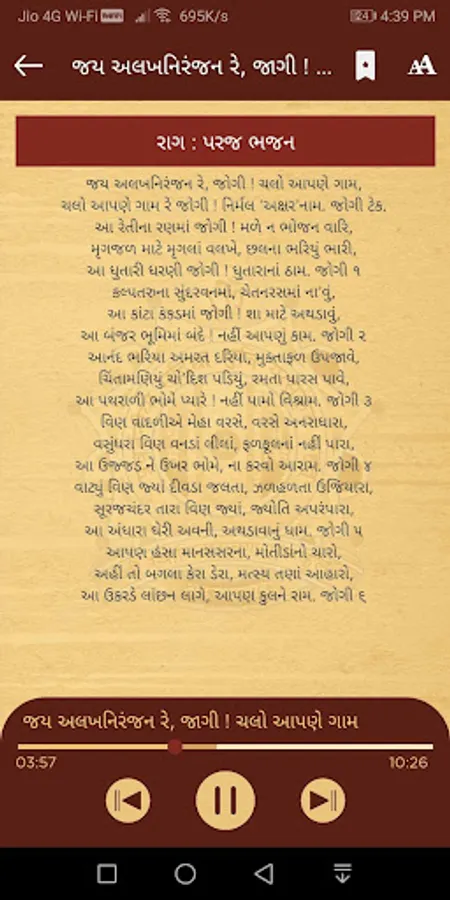 Jio 4G Wi-Fi 695K/s 24 4:39 PM
જય અલખનિરંજન રે, જાગી ! ...
AA
રાગ : પરજ ભજન
જય અલખનિરંજન રે, જોગી ! ચલો આપણે ગામ,
ચલો આપણે ગામ રે જોગી ! નિર્મલ 'અક્ષર'નામ. જોગી ટેક.
આ રેતીના રણમાં જોગી ! મળે ન ભોજન વારિ,
મૃગજળ માટે મૃગલાં વલખે, છલના ભરિયું ભારી,
આ ધુતારી ધરણી જોગી ! ધુતારાનાં ઠામ. જોગી ૧
કલ્પતરુના સુંદરવનમાં, ચેતનરસમાં ના'વું,
આ કાંટા કંકડમાં જોગી ! શા માટે અથડાવું,
આ બંજર ભૂમિમાં બંદે ! નહીં આપણું કામ. જોગી ૨
આનંદ ભરિયા અમરત દરિયા, મુક્તાફળ ઉપજાવે,
ચિંતામણિયું ચો'દિશ પડિયું, રમતા પારસ પાવે,
આ પથરાળી ભોમે પ્યારે ! નહીં પામો વિશ્રામ. જોગી ૩
વિણ વાદળીએ મેહા વરસે, વરસે અનરાધારા,
વસુંધરા વિણ વનડાં લીલાં, ફળફૂલનાં નહીં પારા,
આ ઉજ્જડ ને ઉખર ભોમે, ના કરવો આરામ. જોગી ૪
વાટ્યું વિણ જ્યાં દીવડા જલતા, ઝળહળતા ઉજિયારા,
સૂરજચંદર તારા વિણ જ્યાં, જ્યોતિ અપરંપારા,
આ અંધારા ઘેરી અવની, અથડાવાનું ધામ. જોગી ૫
આપણ હંસા માનસસરના, મોતીડાંનો ચારો,
અહીં તો બગલા કેરા ડેરા, મત્સ્ય તણાં આહારો,
આ ઉકરડે લાંછન લાગે, આપણ કુલને રામ. જોગી ૬
જય અલખનિરંજન રે, જાગી ! ચલો આપણે ગામ
03:57 10:26